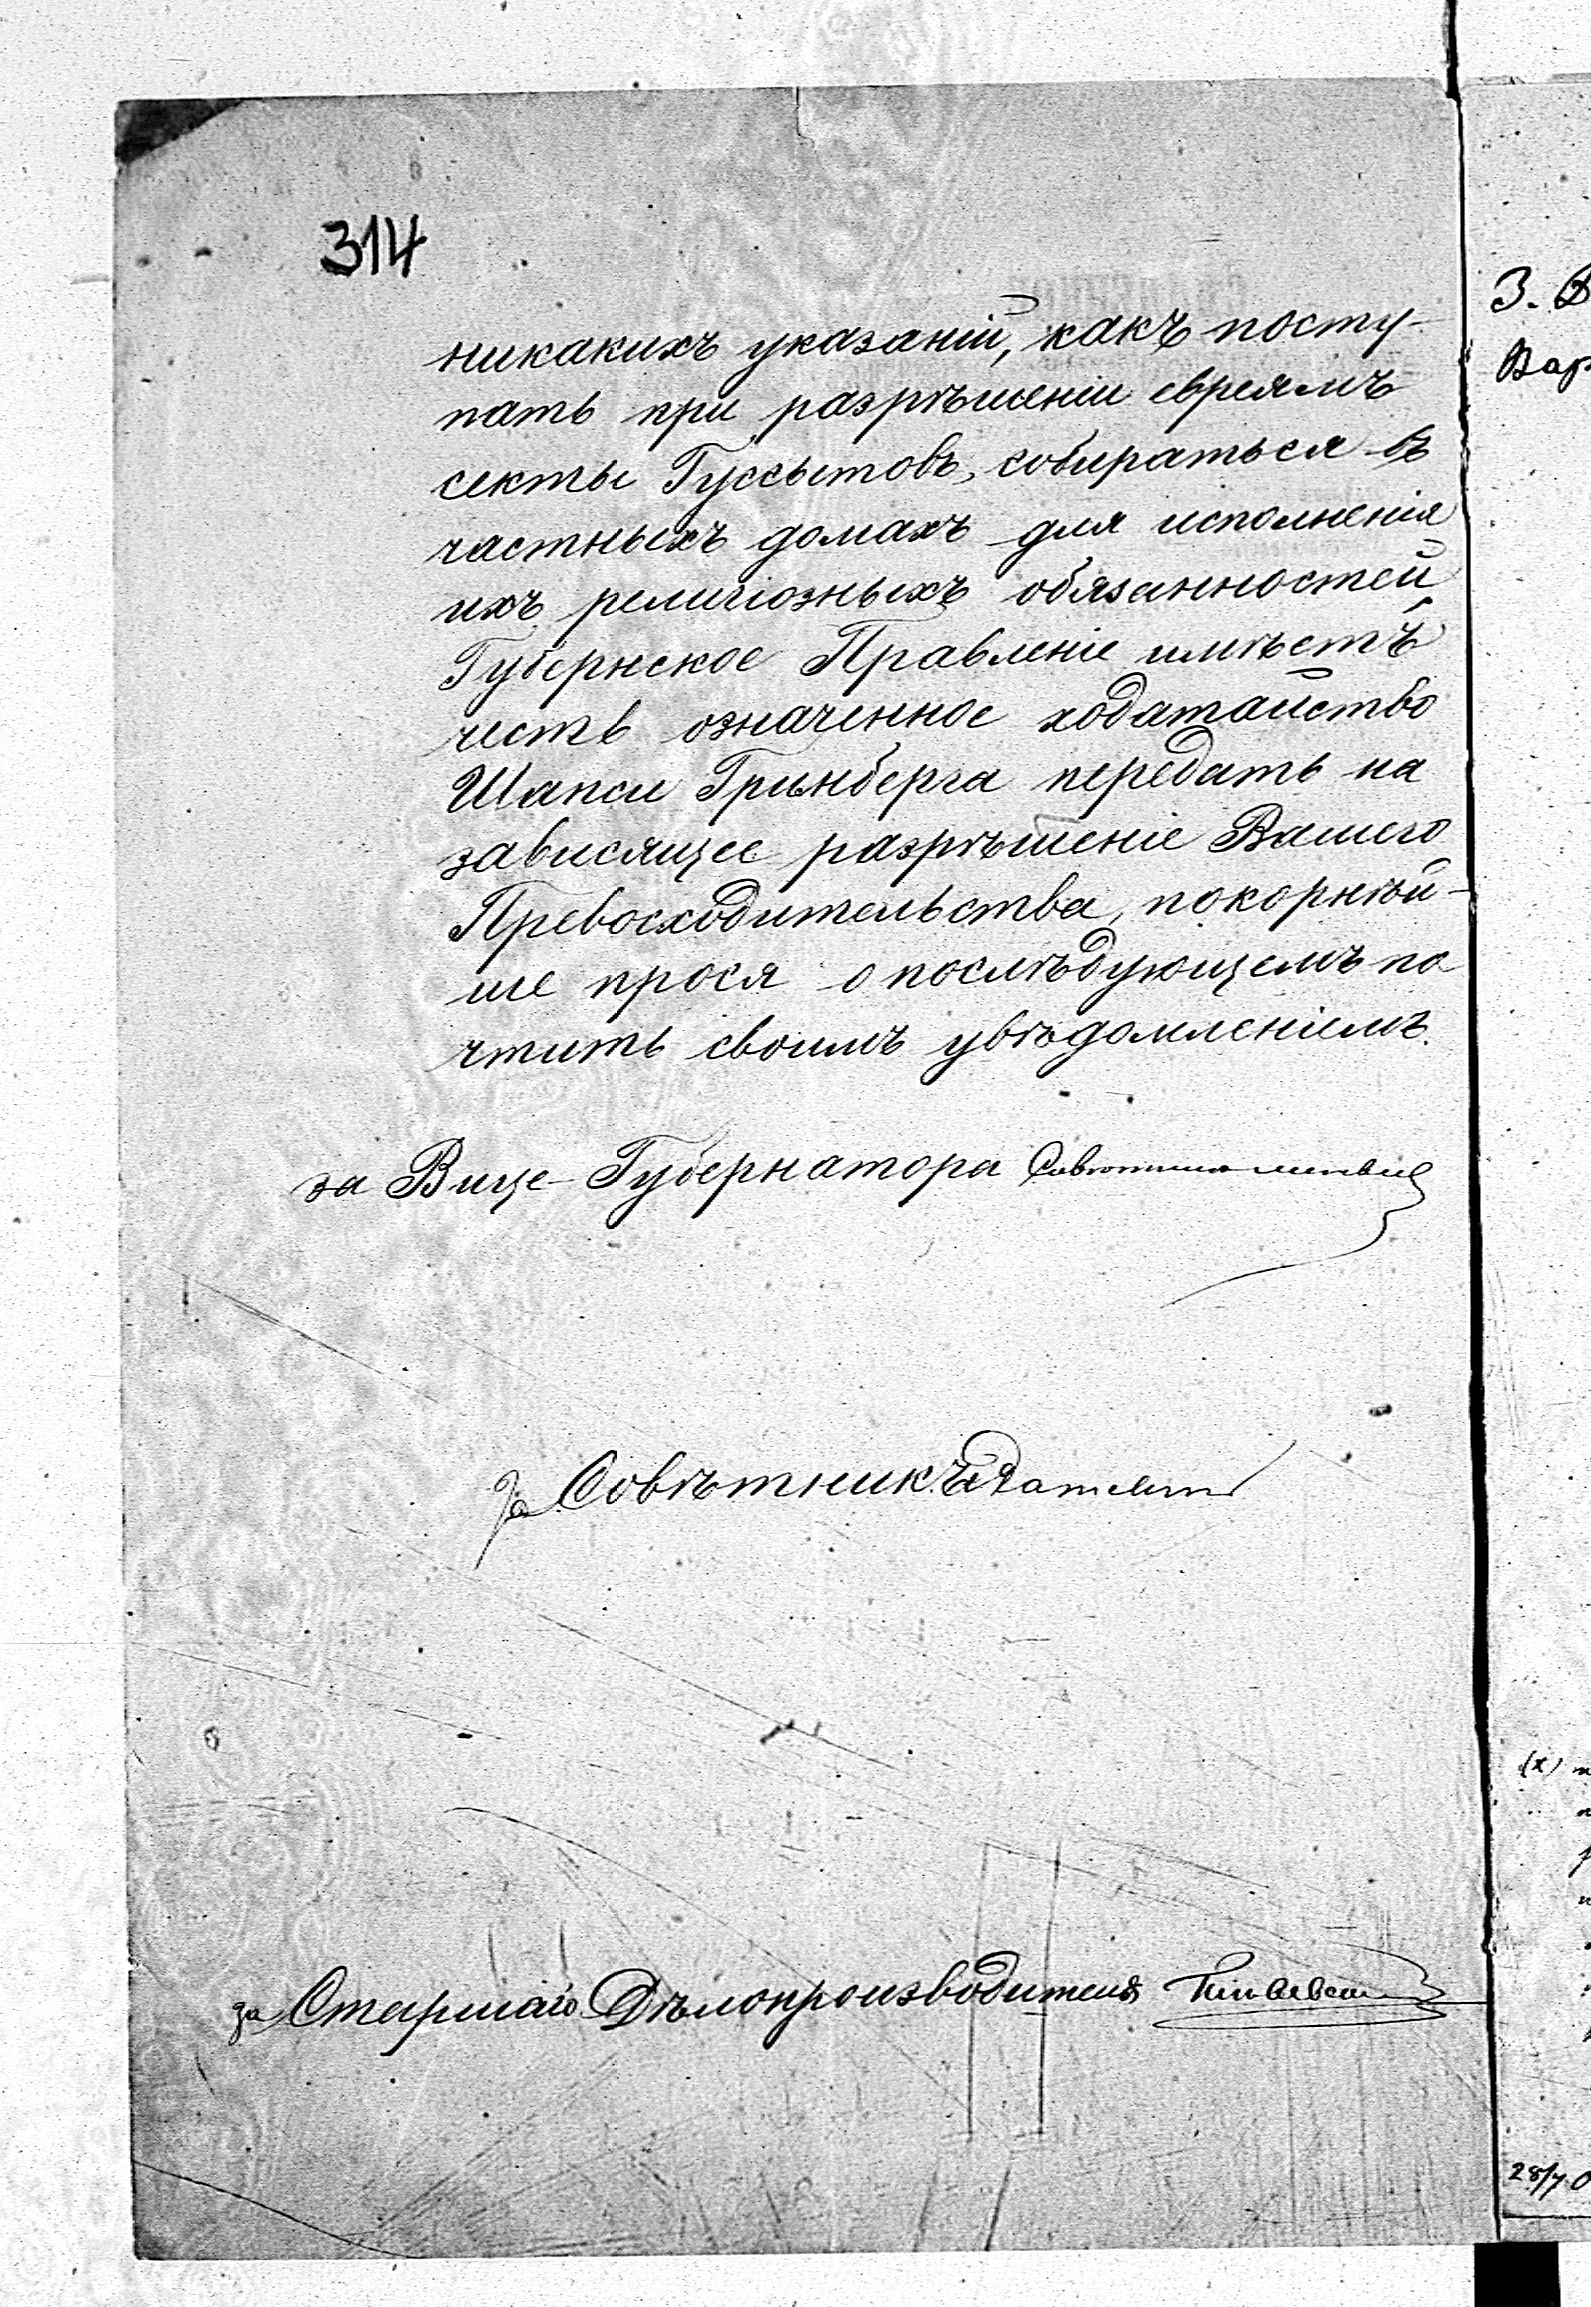 314
никакихъ указаній, какъ посту-
пать при разрѣшеніи евреямъ
секты Гуссытовъ, собираться въ
частныхъ домахъ для исполненія
ихъ религіозныхъ обязанностей,
Губернское Правленіе имѣетъ
честь означенное ходатайство
Шапси Гринберга передать на
зависящее разрѣшеніе Вашего
Превосходительства, покорнѣй-
ше прося о послѣдующемъ по
чтить своимъ увѣдомленіемъ.
за Вице-Губернатора
За Совѣтникъ
за Старшаго Дѣлопроизводителя
З.
Вар
(х)
28/7